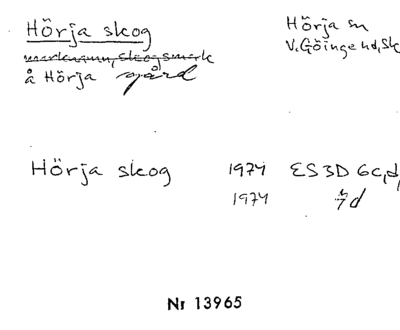 Hörja skog
Hörja sn
marknamn, skogsmark
V. Göinge hd, Sk
å Hörja gård
Hörja skog 1974 ES 3D 6c,d,
1974 7d
Nr 13965